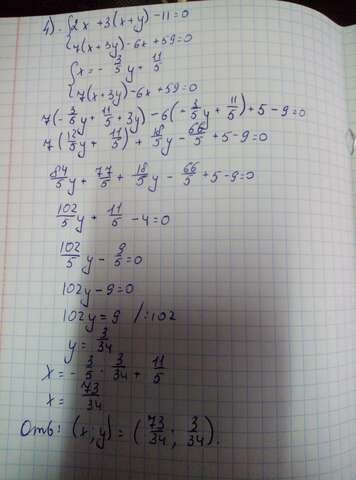 4). { 2x + 3(x+y) - 11 = 0
7(x+3y) - 6x + 59 = 0
{ x = - 3/5 y + 11/5
7(x+3y) - 6x + 59 = 0
7(- 3/5 y + 11/5 + 3y) - 6(- 3/5 y + 11/5) + 5 - 9 = 0
7(12/5 y + 11/5) + 18/5 y - 66/5 + 5 - 9 = 0
84/5 y + 77/5 + 18/5 y - 66/5 + 5 - 9 = 0
102/5 y + 11/5 - 4 = 0
102/5 y - 9/5 = 0
102y - 9 = 0
102y = 9 /:102
y = 3/34
x = - 3/5 · 3/34 + 11/5
x = 73/34
Отв: (x; y) = (73/34; 3/34).